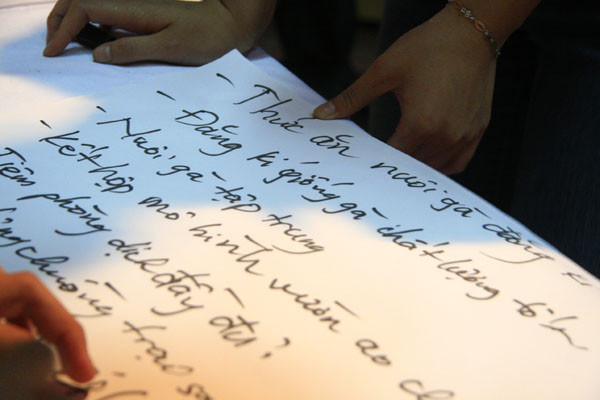 - Thức ăn nuôi gà đăng kí
- Đăng kí giống gà chất lượng tốt
- Nuôi gà tập trung
- Kết hợp mô hình vườn ao
Tiêm phòng dịch đầy đủ
chuồng trại